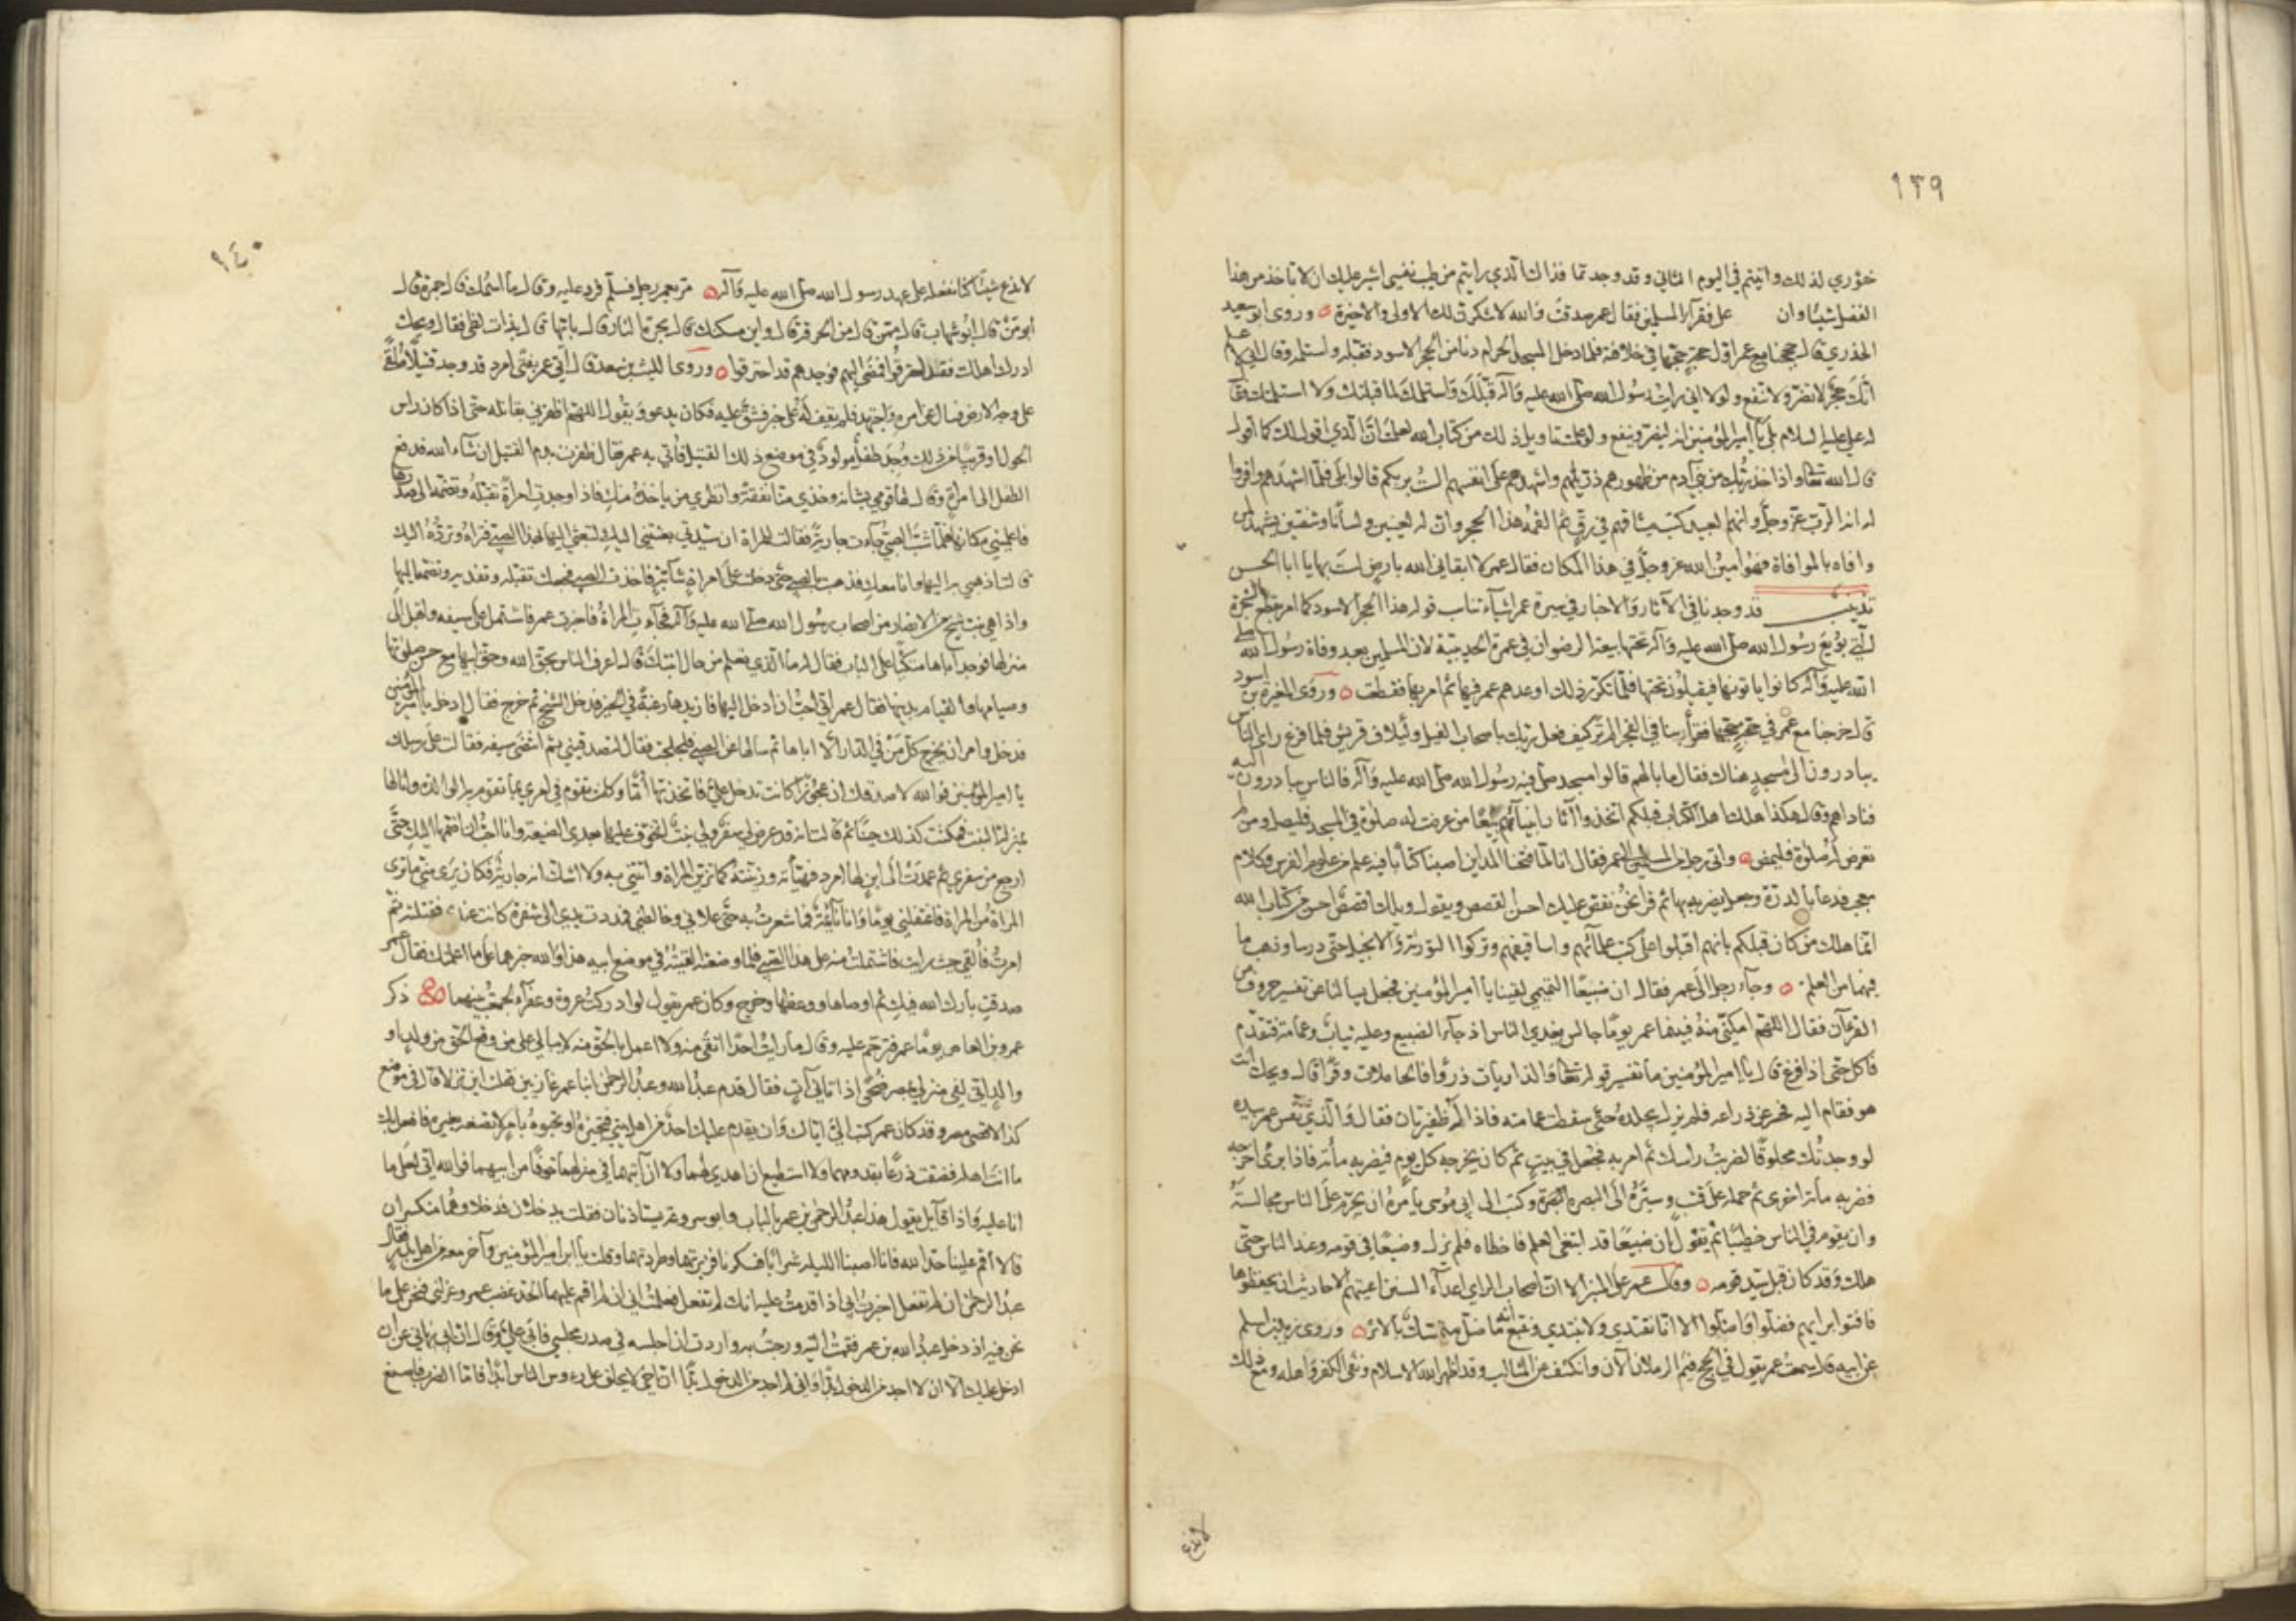 ١٣٩
خؤري لذلك واتيتم في اليوم الثاني وقد وجد تما فذاك الذي رايتم من طيب نفسي اشير عليك ان لا تاخذ من هذا
الفضل شيئا وان على فقرآء المسلمين فقال عمر صدقت والله لاشكرن لك الاولى والاخيرة ٥ وروى ابو سعيد
الخدري قال حججنا مع عمر اول حجة حجها في خلافته فلما دخل المسجد الحرام دنا من الحجر الاسود فقبله واستلمه وقال اني لاعلم
انك حجر لا تضر ولا تنفع ولولا اني رايت رسول الله صلى الله عليه وآله قبلك واستلمك لما قبلتك ولا استلمتك فقا
له علي عليه السلام بلى يا امير المؤمنين انه ليضر وينفع ولو علمت تاويل ذلك من كتاب الله لعلمت ان الذي اقول لك كما اقول
قال الله تعالى واذ اخذ ربك من بني آدم من ظهورهم ذريتهم واشهدهم على انفسهم الست بربكم قالوا بلى فلما اشهدهم واقروا
له انه الرب عز وجل وانهم العبيد كتب ميثاقهم في رق ثم القمه هذا الحجر وان له لعينين ولسانا وشفتين يشهد لمن
وافاه بالموافاة فهو امين الله عز وجل في هذا المكان فقال عمر لا ابقاني الله بارض لست بها يا ابا الحسن
تذنيب قد وجدنا في الآثار والاخبار في سيرة عمر اشيآء تناسب قوله هذا الحجر الاسود كما امر بقطع الشجرة
التي بويع رسول الله صلى الله عليه وآله تحتها بيعة الرضوان في عمرة الحديبية لان المسلمين بعد وفاة رسول الله صلى
الله عليه وآله كانوا ياتونها فيقيلون تحتها فلما تكرر ذلك اوعدهم عمر فيها ثم امر بها فقطعت ٥ وروى المغيرة بن اسود
قال خرجنا مع عمر في حجة حجها فقرأ بنا في الفجر الم تر كيف فعل ربك باصحاب الفيل ولئيلاف قريش فلما فرغ راى الناس
يبادرون الى مسجد هناك فقال ما بالهم قالوا مسجد صلى فيه رسول الله صلى الله عليه وآله فالناس يبادرون اليه
فناداهم وقال هكذا هلك اهل الكتاب قبلكم اتخذوا آثار انبيآئهم بيعا من عرضت له صلوة في المسجد فليصل ومن لم
تعرض له صلوة فليمض ٥ واتى رجل من المسلمين الى عمر فقال انا لما فتحنا المداين اصبنا كتابا فيه علم من علوم الفرس وكلام
معجب فدعا بالدرة وجعل يضربه بها ثم قرأ نحن نقص عليك احسن القصص ويقول ويلك اقصص احسن من كتاب الله
انما هلك من كان قبلكم بانهم اقبلوا على كتب علمآئهم واساقفتهم وتركوا التورية والانجيل حتى درسا وذهب ما
فيهما من العلم ٥ وجآء رجل الى عمر فقال ان ضبيعا التميمي لقينا يا امير المؤمنين فجعل يسالنا عن تفسير حروف من
القرءآن فقال اللهم امكني منه فبينما عمر يوما جالس يغدي الناس اذ جآءه الضبيع وعليه ثياب وعمامة فتقدم
فاكل حتى اذا فرغ قال يا امير المؤمنين ما تفسير قوله تعالى والذاريات ذروا فالحاملات وقرا قال ويحك انت
هو فقام اليه فحسر عن ذراعيه فلم يزل يجلده حتى سقطت عمامته فاذا له ظفيرتان فقال والذي نفس عمر بيده
لو وجدتك محلوقا لضربت راسك ثم امر به فجعل في بيت ثم كان يخرجه كل يوم فيضربه مائة فاذا برئ اخرجه
فضربه مائة اخرى ثم حمله على قتب وسيره الى البصرة وكتب الى ابي موسى يامره ان يحرم على الناس مجالسته
وان يقوم في الناس خطيبا ثم يقول ان ضبيعا قد ابتغى العلم فاخطاه فلم يزل وضيعا في قومه وعند الناس حتى
هلك وقد كان قبل سيد قومه ٥ وقال عمر على المنبر الا ان اصحاب الراي اعدآء السنن اعيتهم الاحاديث ان يحفظوها
فافتوا برايهم فضلوا واضلوا الا انا نقتدي ولا نبتدي ونتبع انه ما ضل متمسك بالاثر ٥ وروى زيد بن اسلم
عن ابيه قال سمعت عمر يقول في الحج فيم الرملان الآن وانكشف عن المناكب وقد اظهر الله الاسلام ونفى الكفر واهله ومع ذلك
لا ندع
١٤٠
لا ندع شيئا كنا نفعله على عهد رسول الله صلى الله عليه وآله ٥ مر بعمر رجل فسلم فرد عليه وقال ما اسمك قال جمرة قال
ابو من قال ابو شهاب قال ممن قال من الحرقة قال واين مسكنك قال بحرة النار قال بايتها قال بذات لظى فقال ويحك
ادرك اهلك فقد احترقوا فمضى اليهم فوجدهم قد احترقوا ٥ وروى الليث بن سعد قال اتي عمر بفتى امرد قد وجد قتيلا ملقى
على وجه الارض فسال عن امره واجتهد فلم يقف له على خبر فشق عليه فكان يدعو ويقول اللهم اظفرني بقاتله حتى اذا كان راس
الحول او قريبا من ذلك وجد طفل مولود في موضع ذلك القتيل فاتي به عمر فقال ظفرت بدم القتيل ان شآء الله فدفع
الطفل الى امرأة وقال لها قومي بشانه وخذي منا نفقته وانظري من ياخذه منك فاذا وجدت امرأة تقبله وتضمه الى صدرها
فاعلميني مكانها فلما شب الصبي جآءت جارية فقالت للمراة ان سيدتي بعثتني اليك لتبعثي اليها بهذا الصبي فتراه وترده اليك
قالت اذهبي به اليها وانا معك فذهبت بالصبي حتى دخلت على امرأة شابة فاخذت الصبي فجعلت تقبله وتفديه وتضمه اليها
واذا هي بنت شيخ من الانصار من اصحاب رسول الله صلى الله عليه وآله فجآءت المراة فاخبرت عمر فاشتمل على سيفه واقبل الى
منزلها فوجد اباها متكئا على الباب فقال له ما الذي تعلم من حال ابنتك قال اعرف الناس بحق الله وحق ابيها مع حسن صلوتها
وصيامها والقيام بدينها فقال عمر اني احب ان ادخل اليها فازيدها رغبة في الخير فدخل الشيخ ثم خرج فقال ادخل يا امير المؤمنين
فدخل وامر ان يخرج كل من في الدار الا اباها ثم سالها عن الصبي فلجلجت فقال لتصدقيني ثم انتضى سيفه فقالت على رسلك
يا امير المؤمنين فوالله لاصدقنك ان عجوزا كانت تدخل علي فاتخذتها اما وكانت تقوم في امري بما تقوم به الوالدة وانا لها
بمنزلة البنت فمكثت كذلك حينا ثم قالت انه قد عرض لي سفر ولي بنت اتخوف عليها بعدي الضيعة وانا احب ان اضمها اليك حتى
ارجع من سفري ثم عمدت الى ابن لها امرد فهيأته وزينته كما تزين المراة واتتني به ولا اشك انه جارية فكان يرى مني ما ترى
المراة من المراة فاغتفلني يوما وانا نائمة فما شعرت به حتى علاني وخالطني فمددت يدي الى شفرة كانت عندي فقتلته ثم
امرت به فالقي حيث رايت فاشتملت منه على هذا الصبي فلما وضعته القيته في موضع ابيه هذا والله خبرهما على ما اعلمتك فقال عمر
صدقت بارك الله فيك ثم اوصاها ووعظها وخرج وكان عمر يقول لو ادركت عروة وعفرآء لجمعت بينهما ٥٥ ذكر
عمرو بن العاص يوما عمر فترحم عليه وقال ما رايت احدا اتقى منه ولا اعمل بالحق منه لا يبالي على من وقع الحق من ولد او
والد اني لفي منزلي بمصر ضحى اذ اتاني آت فقال قدم عبد الله وعبد الرحمن ابنا عمر غازيين فقلت اين نزلا قال في موضع
كذا لاقصى مصر وقد كان عمر كتب الي اياك وان يقدم عليك احد من اهل بيتي فتجيزه او تحبوه بامر لا تصنعه بغيره فافعل بك
ما انت اهله فضقت ذرعا بقدومهما ولا استطيع ان اهدي لهما ولا ان آتيهما في منزلهما خوفا من ابيهما فوالله اني لعلى ما
انا عليه واذا قائل يقول هذا عبد الرحمن بن عمر بالباب وابو سروعة يستاذنان فقلت يدخلان فدخلا وهما منكسران
قالا اقم علينا حد الله فانا اصبنا الليلة شرابا فسكرنا فزبرتهما وطردتهما وقلت يا ابن امير المؤمنين وآخر معه من اهل بدر فقال
عبد الرحمن ان لم تفعل اخبرت ابي اذا قدمت عليه انك لم تفعل فعلمت اني ان لم اقم عليهما الحد غضب عمر وعزلني فنحن على ما
نحن فيه اذ دخل عبد الله بن عمر فقمت اليه ورحبت به واردت ان اجلسه في صدر مجلسي فابى علي وقال ان ابي نهاني عن ان
ادخل عليك الا ان لا اجد من الدخول بدا واني لم اجد من الدخول بدا ان اخي لا يحلق على رءوس الناس ابدا فاما الضرب فاصنع